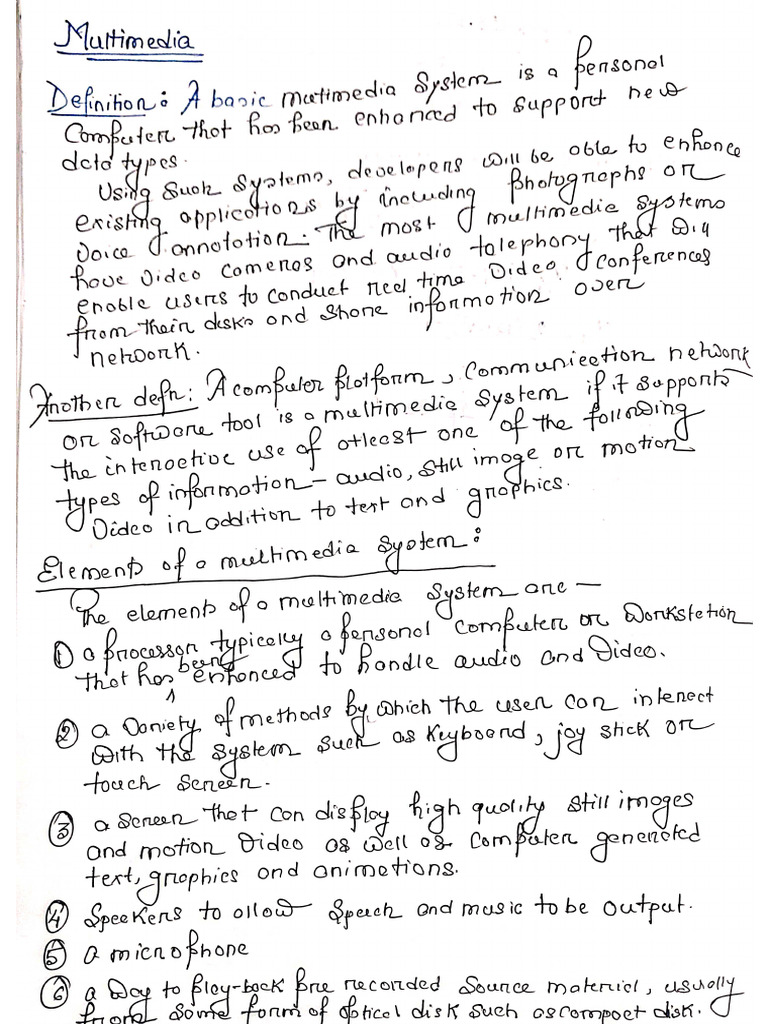 Multimedia
Definition: A basic multimedia System is a personal
Computer that has been enhanced to support new
data types.
Using such systems, developers will be able to enhance
existing applications by including photographs or
voice annotation. The most multimedia systems
have video cameras and audio telephony that will
enable users to conduct real time video conferences
from their disks and share information over
network.
Another defn: A computer platform, communication network
or software tool is a multimedia system if it supports
the interactive use of atleast one of the following
types of information - audio, still image or motion
video in addition to text and graphics.
Elements of a multimedia system:
The element of a multimedia system are —
① a processor typically a personal computer or workstation
that has being enhanced to handle audio and video.
② a variety of methods by which the user can interact
with the system such as keyboard, joy stick or
touch screen.
③ a screen that can display high quality still images
and motion video as well as computer generated
text, graphics and animations.
④ Speakers to allow speech and music to be output.
⑤ a microphone
⑥ a way to play-back pre recorded source material, usually
from some form of optical disk such as compact disk.